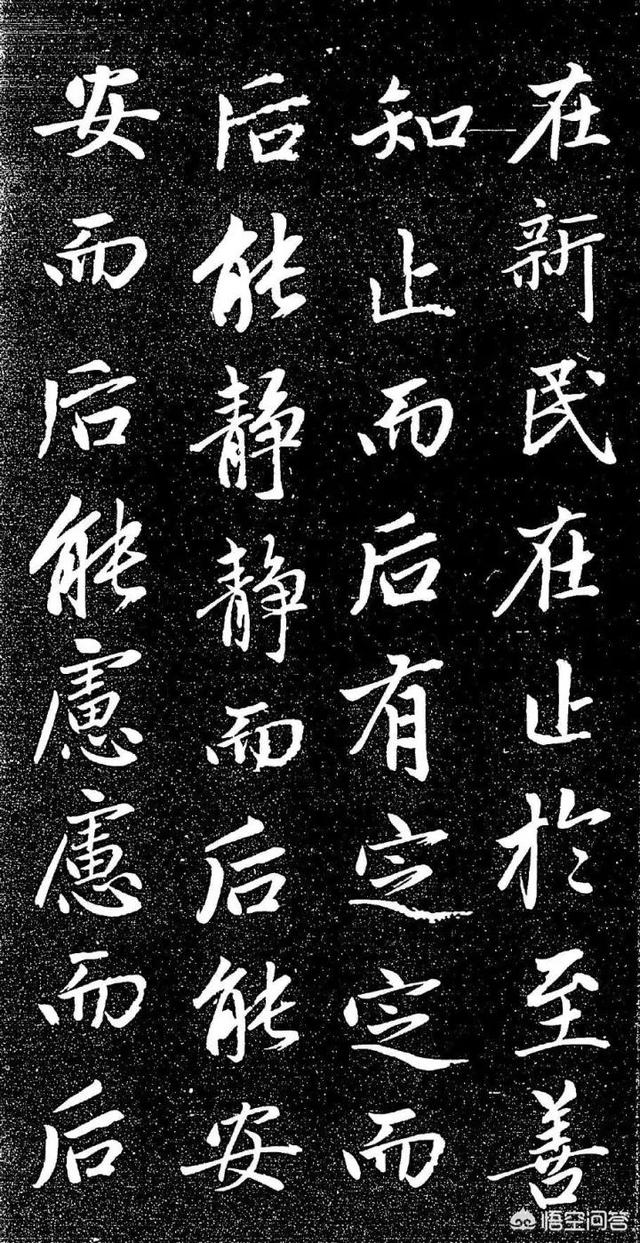 在新民在止於至善
知止而后有定定而
后能静静而后能安
安而后能慮慮而后
悟空问答